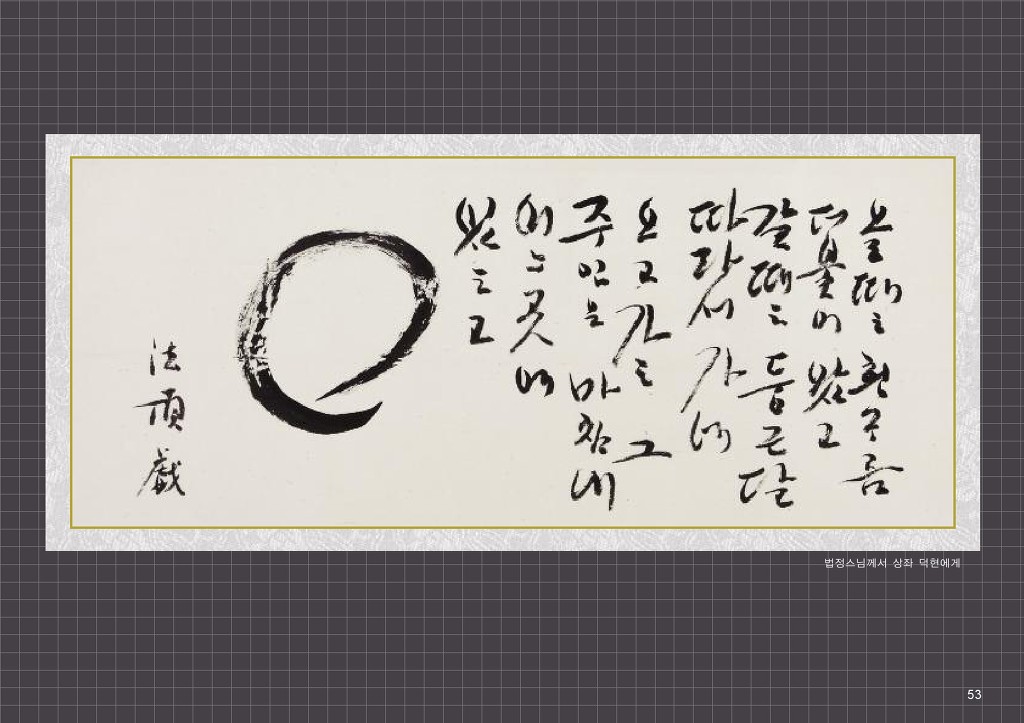 올때는 흰구름
더불어 왔고
갈때는 둥근달
따라서 가네
오고가는 그
주인은 마침내
어느곳에
있는고
法頂戱
법정스님께서 상좌 덕현에게
53